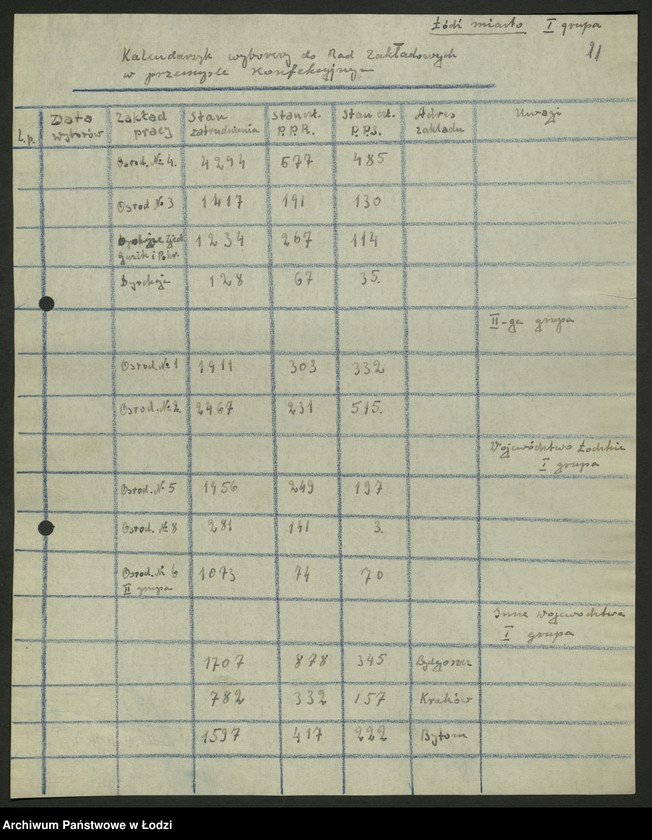 Łódź miasto I grupa
21
Kalendarzyk wyborczy do Rad Zakładowych
w przemyśle Konfekcyjnym
L.p. Data wyborów Zakład pracy Stan zatrudnienia Stan czł. P.P.R. Stan czł. P.P.S. Adres zakładu Uwagi
Osrod. № 4. 4294 677 485
Osrod № 3 1417 191 130
Gusik i Pokr. 1234 267 114
Dyrekcja 128 67 35.
II-ga grupa
Osrod. № 1 1911 303 332
Osrod. № 2. 2467 231 515.
Województwo Łódzkie
I grupa
Osrod. № 5 1956 249 197
Osrod. № 8 281 141 3.
Osrod. № 6 1073 74 70
II grupa
Inne województwa
I grupa
1707 878 345 Bydgoszcz
782 332 157 Kraków
1597 417 222 Bytom
Archiwum Państwowe w Łodzi